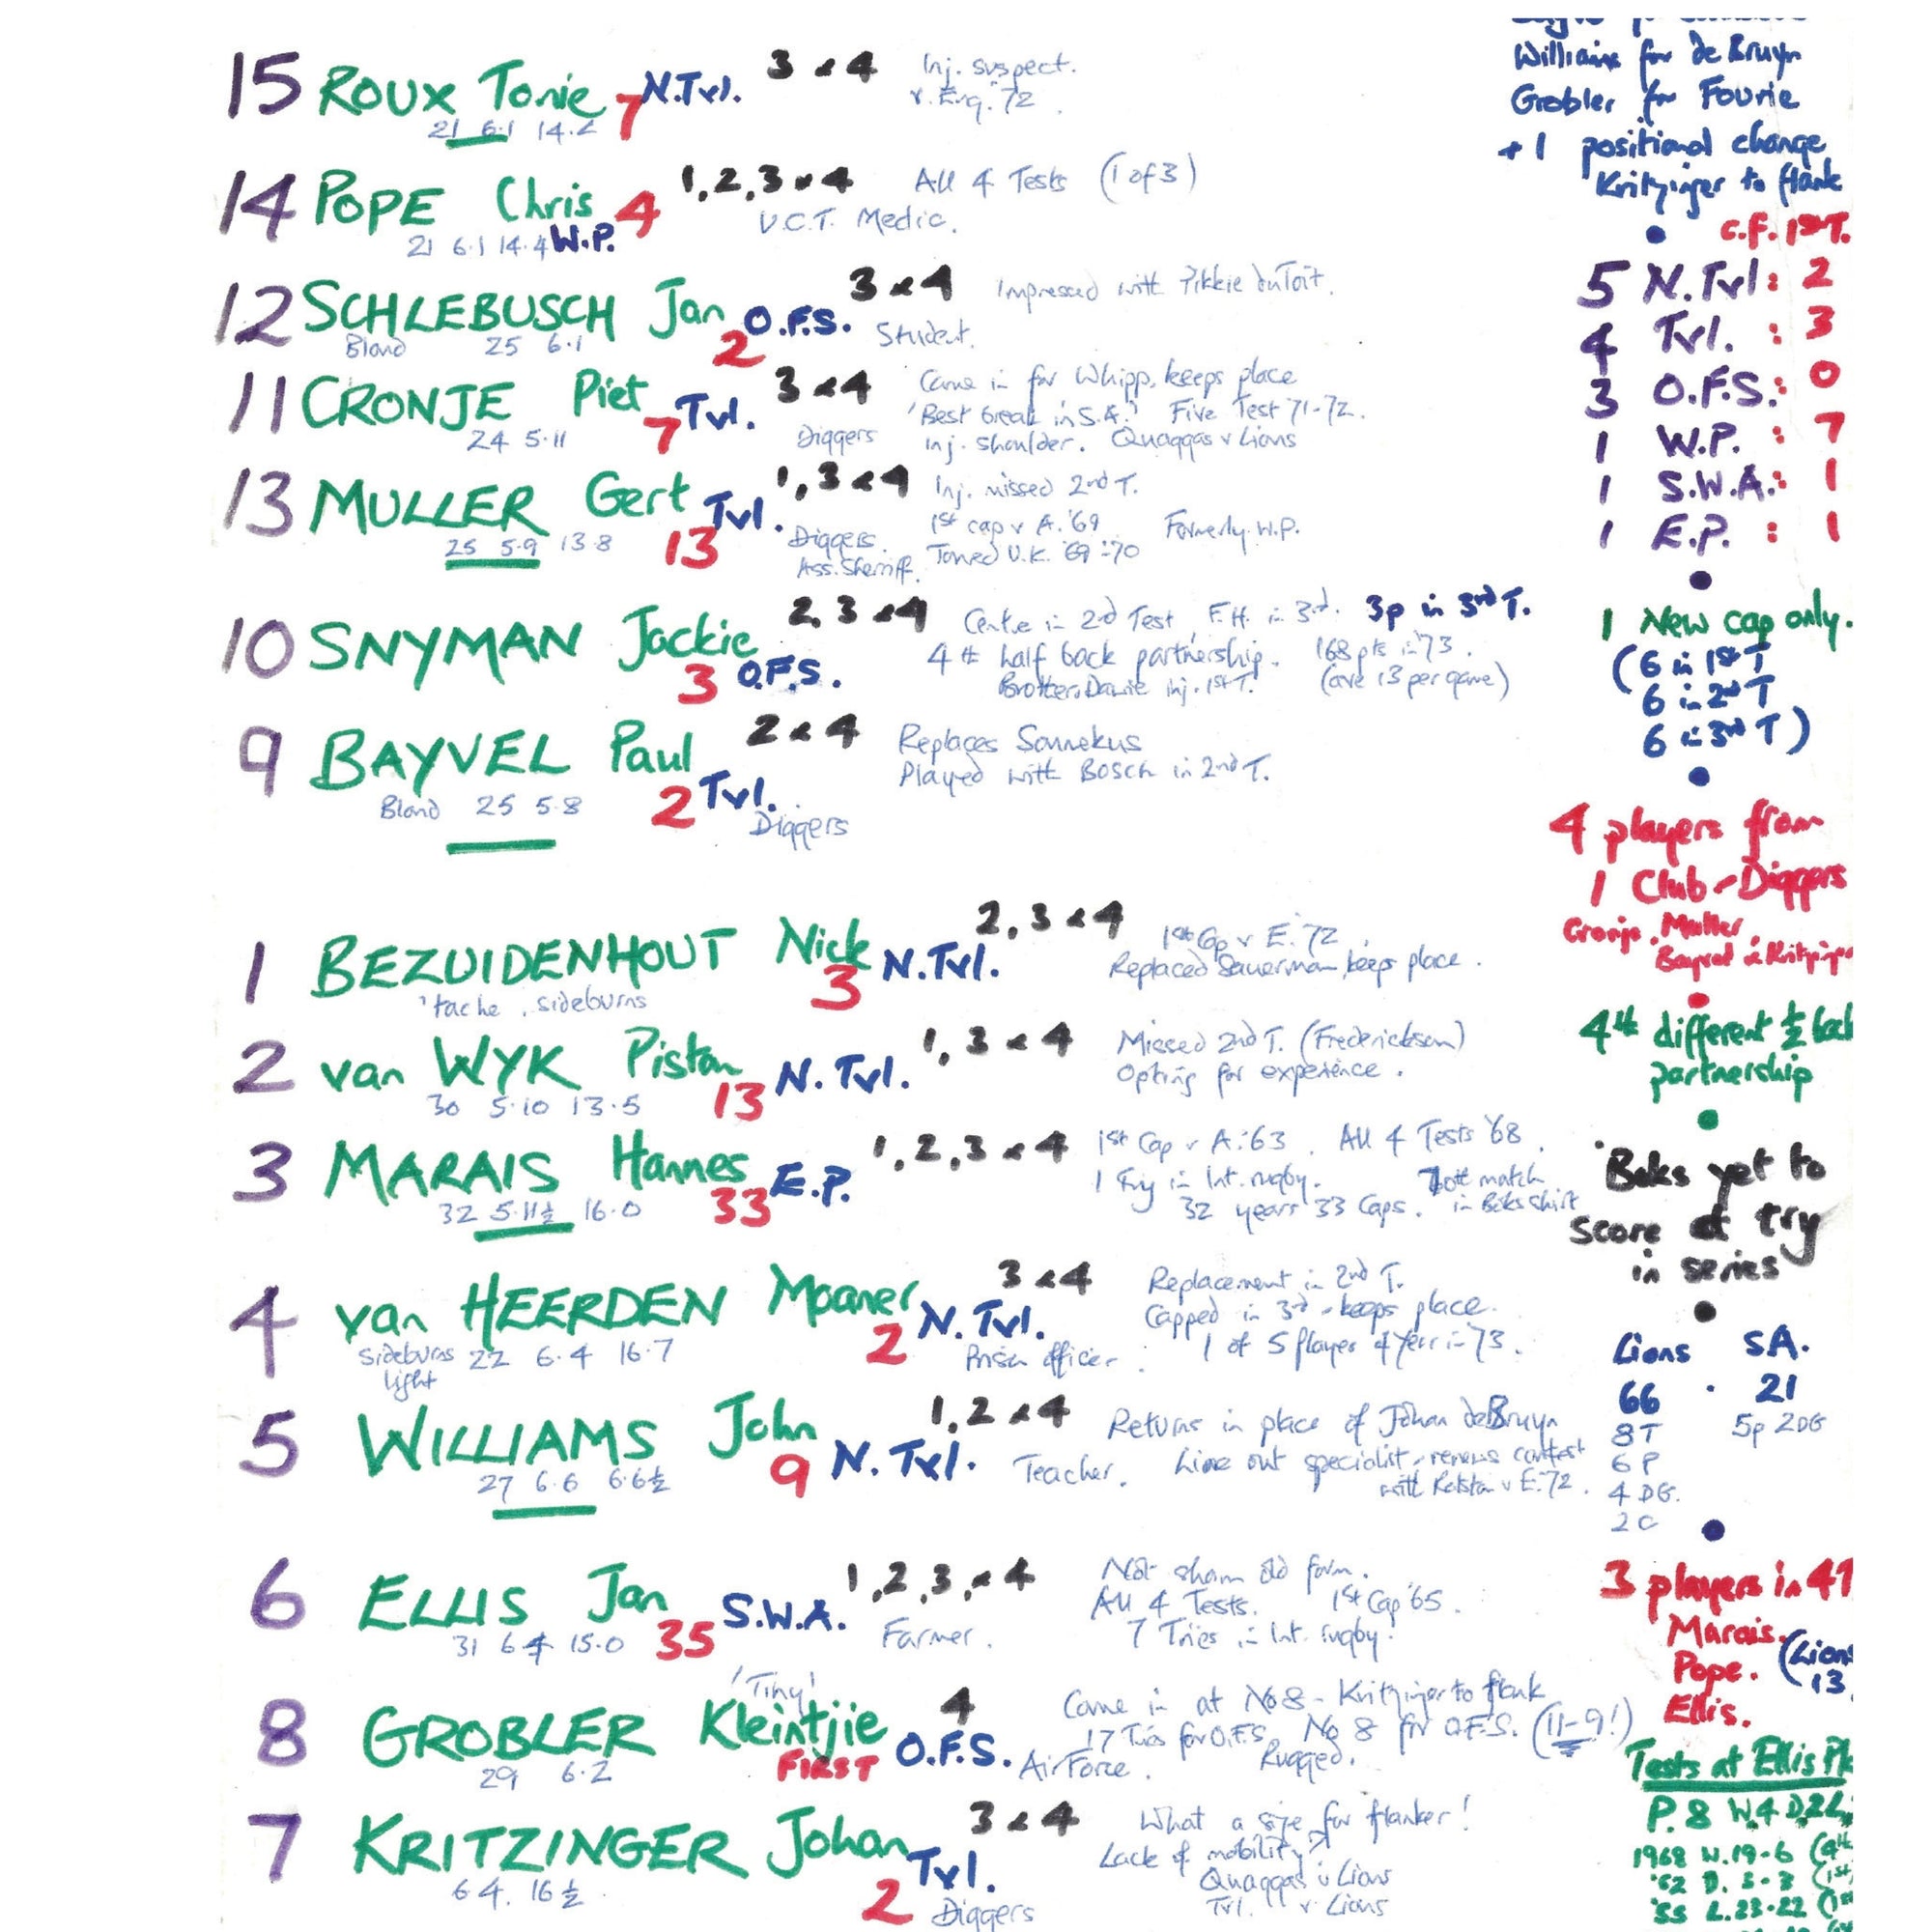 15 ROUX Tonie 7 N.Tvl. 3 & 4 Inj. suspect.
21 6.1 14.2 v. Eng. 72
14 POPE Chris 4 1,2,3 & 4 All 4 Tests (1 of 3)
21 6.1 14.4 W.P. U.C.T. Medic.
12 SCHLEBUSCH Jan 2 O.F.S. 3 & 4 Impressed with Pikkie duToit.
Blond 25 6.1 Student.
11 CRONJE Piet 7 Tvl. 3 & 4 Came in for Whipp, keeps place
'Best break in S.A.' Five Test 71-72.
24 5.11 Diggers Inj. shoulder. Quaggas v Lions
13 MULLER Gert 13 Tvl. 1, 3 & 4 Inj. missed 2nd T.
1st cap v A. '69 Formerly W.P.
25 5.9 13.8 Diggers. Toured U.K. '69-'70
Ass. Sherriff.
10 SNYMAN Jackie 3 O.F.S. 2, 3 & 4 Centre in 2nd Test, F.H. in 3rd. 3p in 3rd T.
4th half back partnership. 168 pts in '73.
Brother Dawie inj. 1st T. (ave 13 per game)
9 BAYVEL Paul 2 Tvl. 2 & 4 Replaces Sonnekus
Played with Bosch in 2nd T.
Blond 25 5.8 Diggers
1 BEZUIDENHOUT Nick 3 N.Tvl. 2, 3 & 4 1st Cap v E. '72
Replaced Sauerman, keeps place.
'tache, sideburns
2 van WYK Piston 13 N. Tvl. 1, 3 & 4 Missed 2nd T. (Frederickson)
Opting for experience.
30 5.10 13.5
3 MARAIS Hannes 33 E.P. 1,2,3 & 4 1st Cap v A. '63. All 4 Tests '68.
1 Try in Int. rugby. match
32 5.11½ 16.0 32 years 33 Caps. in Boks shirt
4 van HEERDEN Moaner 2 N. Tvl. 3 & 4 Replacement in 2nd T.
Capped in 3rd - keeps place.
Sideburns 22 6.4 16.7 Prison officer. 1 of 5 player of Year in '73.
light
5 WILLIAMS John 9 N. Tvl. 1,2 & 4 Returns in place of Johan deBruyn
27 6.6 6.6½ Teacher. Line out specialist, renews contest
with Ralston v E. '72.
6 ELLIS Jan 35 S.W.A. 1,2,3, & 4 Not shown old form.
All 4 Tests. 1st Cap '65.
31 6.4 15.0 Farmer. 7 Tries in Int. rugby!
'Tiny'
8 GROBLER Kleintjie FIRST O.F.S. 4 Came in at No 8 - Kritzinger to flank
17 Tries for O.F.S. No 8 for O.F.S. (11-9!)
29 6.2 Air Force. Rugged.
7 KRITZINGER Johan 2 Tvl. 3 & 4 What a size for flanker!
Lack of mobility?
6 4. 16½ Quaggas v Lions
Diggers Tvl. v Lions
Williams for de Bruyn
Grobler for Fourie
+ 1 positional change
Kritzinger to flank
C.F. 1st T.
5 N. Tvl: 2
4 Tvl. : 3
3 O.F.S.: 0
1 W.P. : 7
1 S.W.A.: 1
1 E.P. : 1
1 New cap only.
(6 in 1st T
6 in 2nd T
6 in 3rd T)
4 players from
1 Club - Diggers
Cronje, Muller,
Bayvel & Kritzinger
4th different ½ back
partnership
'Boks yet to
score a try
in series
Lions S.A.
66 . 21
8T 5p 2DG
6P
4 DG.
2 C
3 players in 4T
Marais. (Lions
Pope. 13
Ellis.
Tests at Ellis Pk
P. 8 W4 D2 L
1968 W. 19-6 (4th
'62 D. 3-3 (1st
'55 L. 23-22 (1st